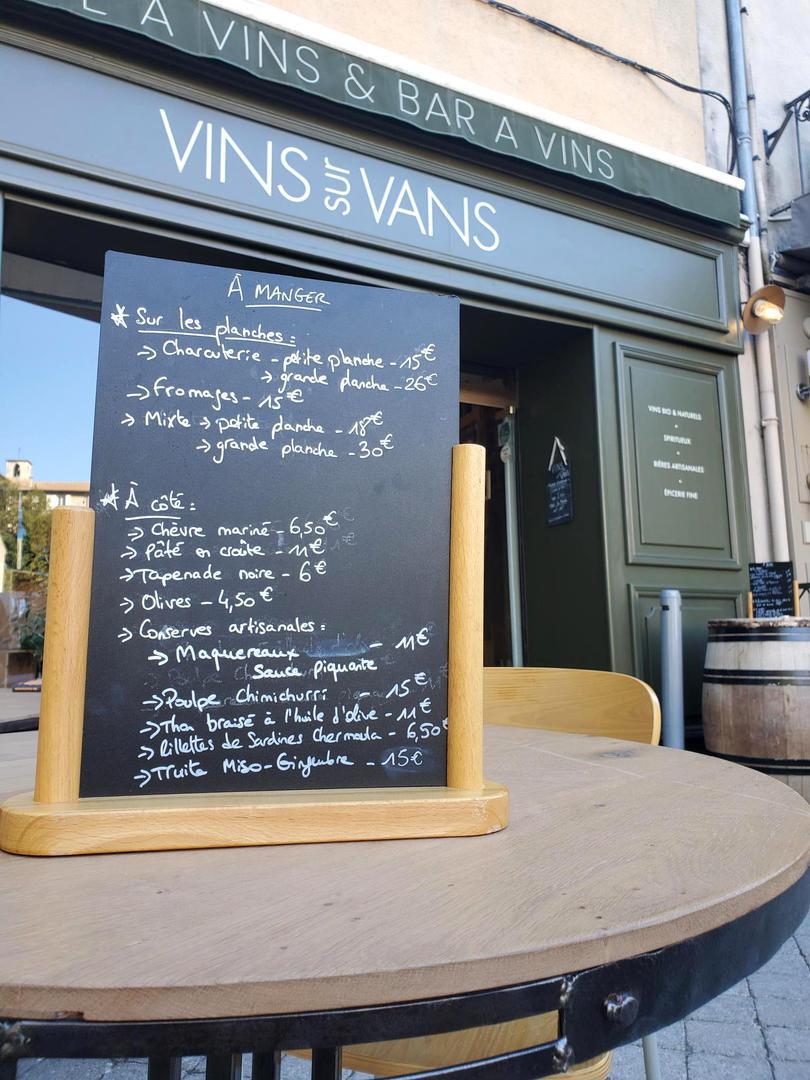 E A VINS & BAR A VINS
VINS sur VANS
À MANGER
* Sur les planches :
→ Charcuterie - petite planche - 15€
→ grande planche - 26€
→ Fromages - 15€
→ Mixte → petite planche - 18€
→ grande planche - 30€
* À côté :
→ Chèvre mariné - 6,50€
→ Pâté en croûte - 11€
→ Tapenade noire - 6€
→ Olives - 4,50€
→ Conserves artisanales :
→ Maquereaux - 11€
Sauce piquante
→ Poulpe Chimichurri - 15€
→ Thon braisé à l'huile d'olive - 11€
→ Rillettes de Sardines Chermoula - 6,50€
→ Truite Miso-Gingembre - 15€
VINS BIO & NATURELS
•
SPIRITUEUX
•
BIÈRES ARTISANALES
•
ÉPICERIE FINE